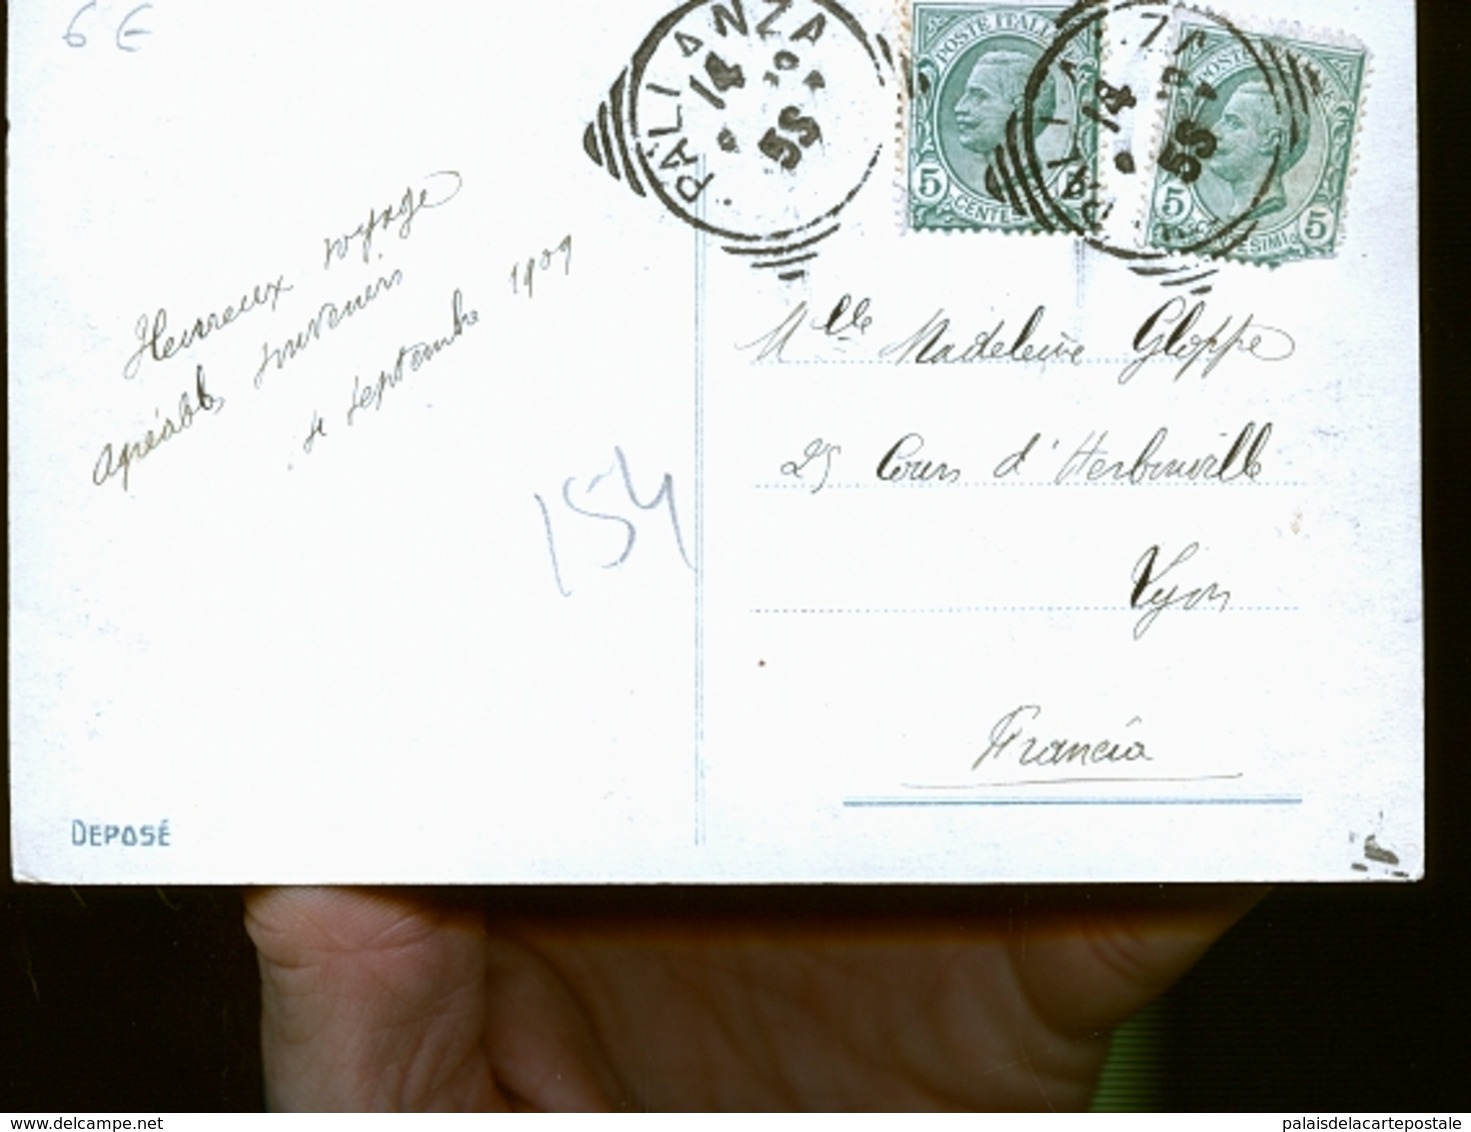 6 €
PALLANZA
14
9
5S
POSTE ITALIANE
5
CENTESIMI
14
9
5S
5
5
CENTESIMI
Heureux voyage
agréables souvenirs
4 septembre 1909
154
Mlle Madeleine Gloppe
25 Cours d'Herbouville
Lyon
Francia
DEPOSÉ
www.delcampe.net
palaisdelacartepostale